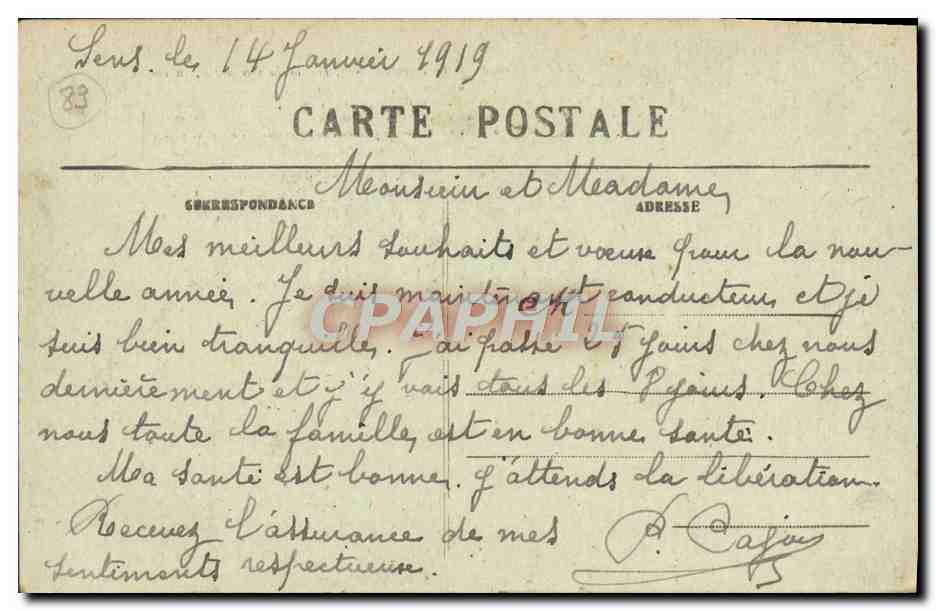 Sens. le 14 Janvier 1919
89
CARTE POSTALE
Monsieur et Madame,
CORRESPONDANCE
ADRESSE
Mes meilleurs souhaits et vœuse pour la nou-
velle année. Je suis maintenant conducteur, et je
suis bien tranquille. J'ai passé 25 jours chez nous
dernièrement et j'y vais tous les 8 jours. Chez
nous toute la famille est en bonne santé.
Ma santé est bonne. J'attends la libération.
Recevez l'assurance de mes
sentiments respectueuse.
CPAPHIL